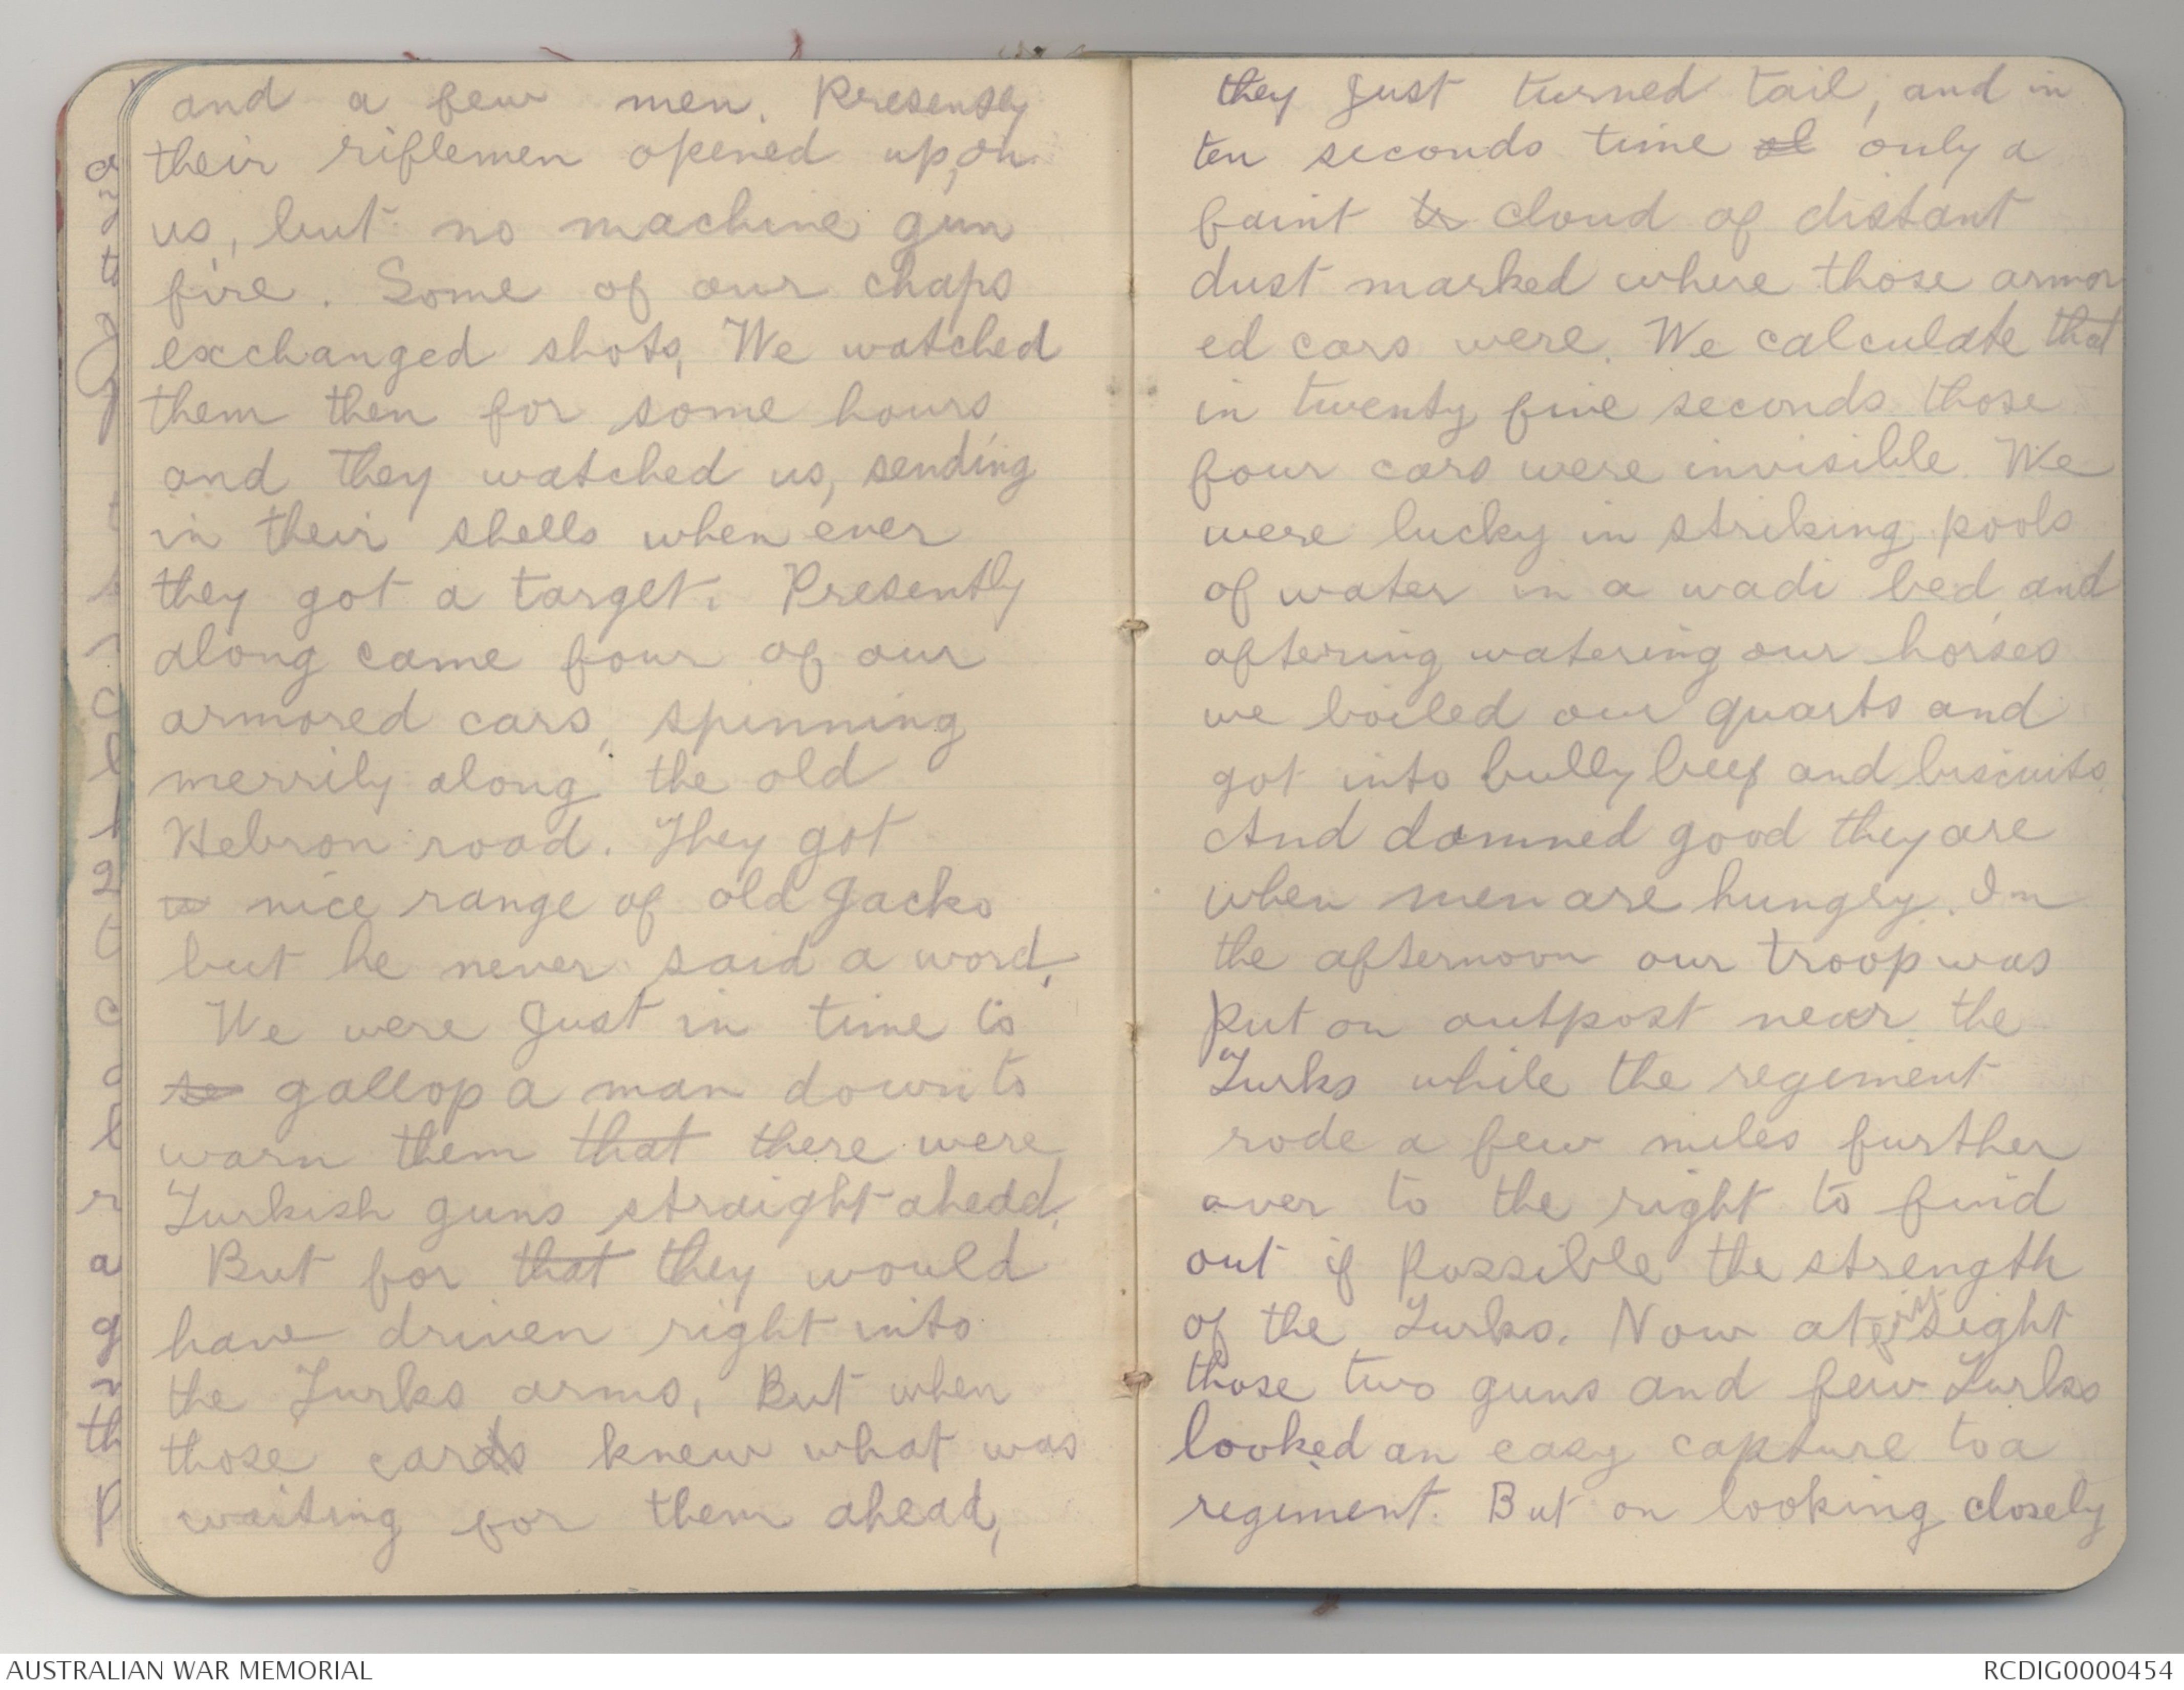 and a few men. Presently
their riflemen opened up, on
us, but no machine gun
fire. Some of our chaps
exchanged shots, We watched
them then for some hours
and they watched us, sending
in their shells when ever
they got a target. Presently
along came four of our
armored cars, spinning
merrily along the old
Hebron road. They got
nice range of old Jacko
but he never said a word,
We were Just in time to
to gallop a man down to
warn them that there were
Turkish guns straight ahead.
But for that they would
have driven right into
the Turks arms, But when
those cards knew what was
waiting for them ahead,
they Just turned tail, and in
ten seconds time only a
faint cloud of distant
dust marked where those armor
ed cars were. We calculate that
in twenty five seconds those
four cars were invisible. We
were lucky in striking pools
of water in a wadi bed, and
aftering watering our horses
we boiled our quarts and
got into bully beef and biscuits.
And damned good they are
when men are hungry. In
the afternoon our troop was
put on outpost near the
Turks while the regiment
rode a few miles further
over to the right to find
out if possible the strength
of the Turks. Now at first sight
those two guns and few Turks
looked an easy capture to a
regiment. But on looking closely
AUSTRALIAN WAR MEMORIAL
RCDIG0000454